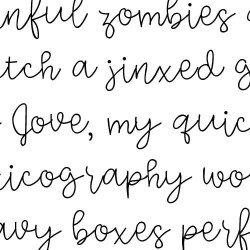 nful zombies
tch a jinxed g
Jove, my quic
icography wo
avy boxes perf